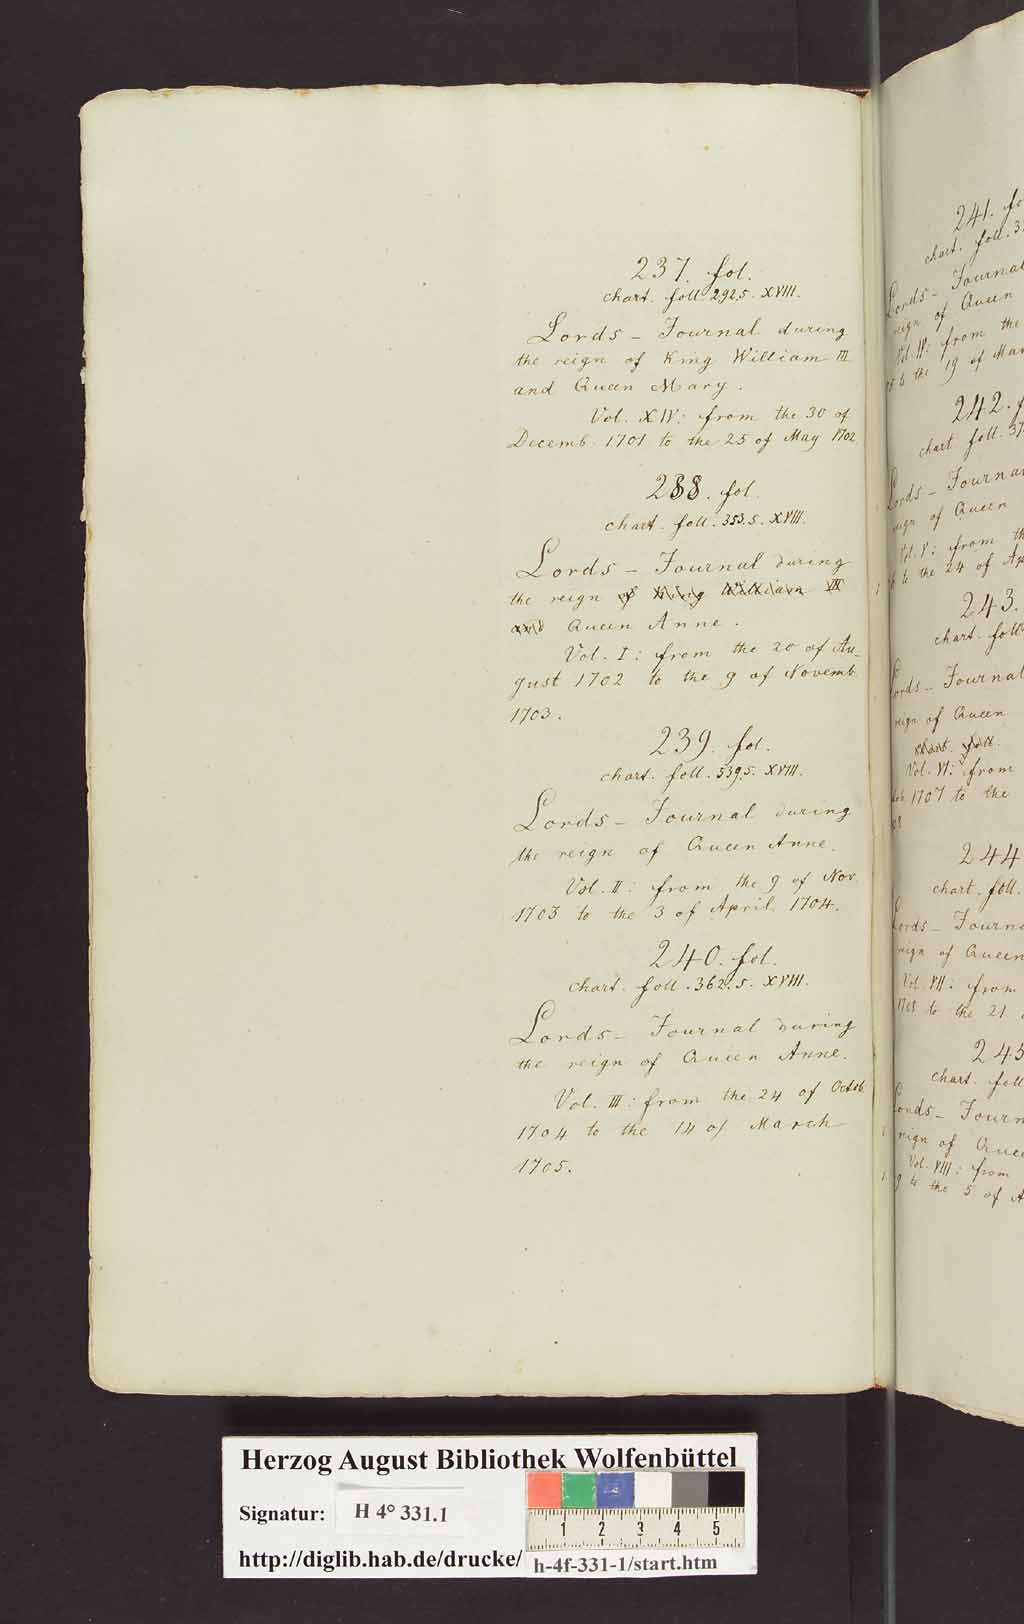 237. fol.
chart. foll. 292. s. XVIII.
Lords - Journal during
the reign of King William III
and Queen Mary.
Vol. XIV: from the 30 of
Decemb. 1701 to the 25 of May 1702.
238. fol.
chart. foll. 353. s. XVIII.
Lords - Journal during
the reign of King William III
and Queen Anne.
Vol. I: from the 20 of Au-
gust 1702 to the 9 of Novemb.
1703.
239. fol.
chart. foll. 539. s. XVIII.
Lords - Journal during
the reign of Queen Anne.
Vol. II: from the 9 of Nov.
1703 to the 3 of April 1704.
240. fol.
chart. foll. 362. s. XVIII.
Lords - Journal during
the reign of Queen Anne.
Vol. III: from the 24 of Octob.
1704 to the 14 of March
1705.
241. fo
chart. foll. 3
Lords - Journal
reign of Queen
Vol. IV: from the
to the 19 of Mar
242. f
chart foll. 37
Lords - Journa
reign of Queen
Vol. V: from th
to the 24 of Ap
243.
chart. foll
Lords - Journal
reign of Queen
chart. foll.
Vol. VI: from
1707 to the
244
chart. foll.
Lords - Journa
reign of Queen
Vol. VII: from
to the 21
245
chart. foll
Lords - Journ
reign of Quee
Vol. VIII: from
to the 5 of A
Herzog August Bibliothek Wolfenbüttel
Signatur: H 4° 331.1
1 2 3 4 5
http://diglib.hab.de/drucke/ h-4f-331-1/start.htm